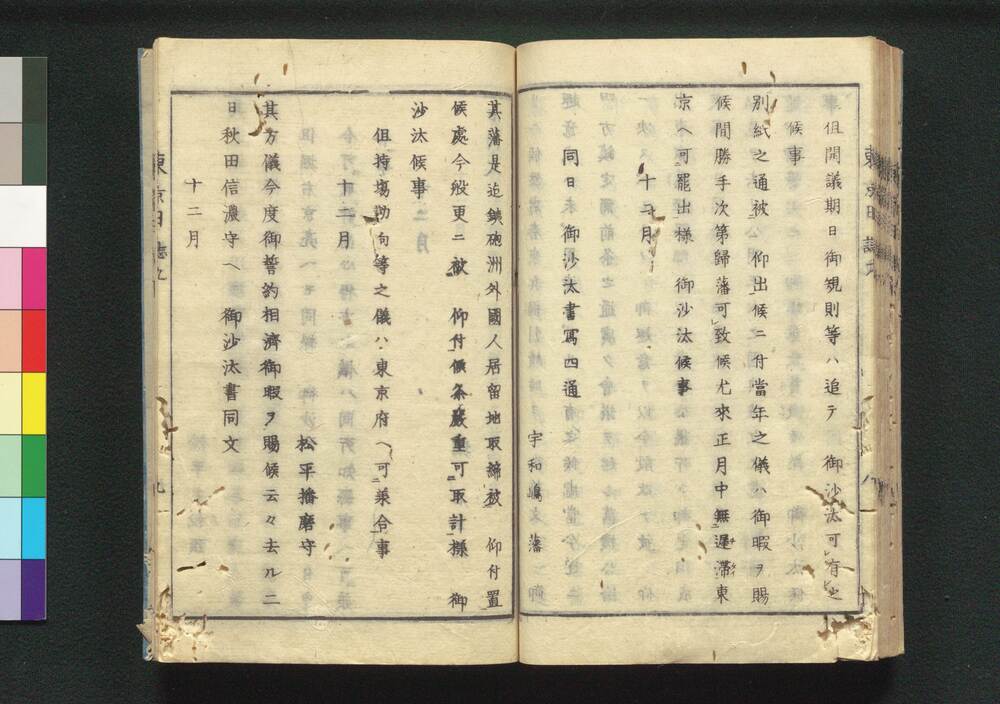 但開議期日御規則等ハ追テ　御沙汰可有之
候事
別紙之通被　仰出候ニ付當年之儀ハ御暇ヲ賜
候間勝手次第歸藩可致候尤來正月中無遲滯東
京ヘ可罷出樣　御沙汰候事
十二月
同日御沙汰書寫四通
宇和嶋藩
其藩是迄鐵砲洲外國人居留地取締被　仰付置
候處今般更ニ被　仰付候条嚴重可取計樣　御
沙汰候事
但持塲勤向等之儀ハ東京府ヘ可乗合事
十二月
松平播磨守
其方儀今度御誓約相濟御暇ヲ賜候云々去ル二
日秋田信濃守ヘ　御沙汰書同文
十二月
東京日誌九
九